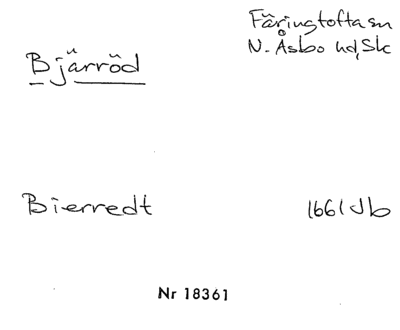 Färingtofta sn
Bjärröd
N. Åsbo hd, Sk
Bierredt
1661 Jb
Nr 18361